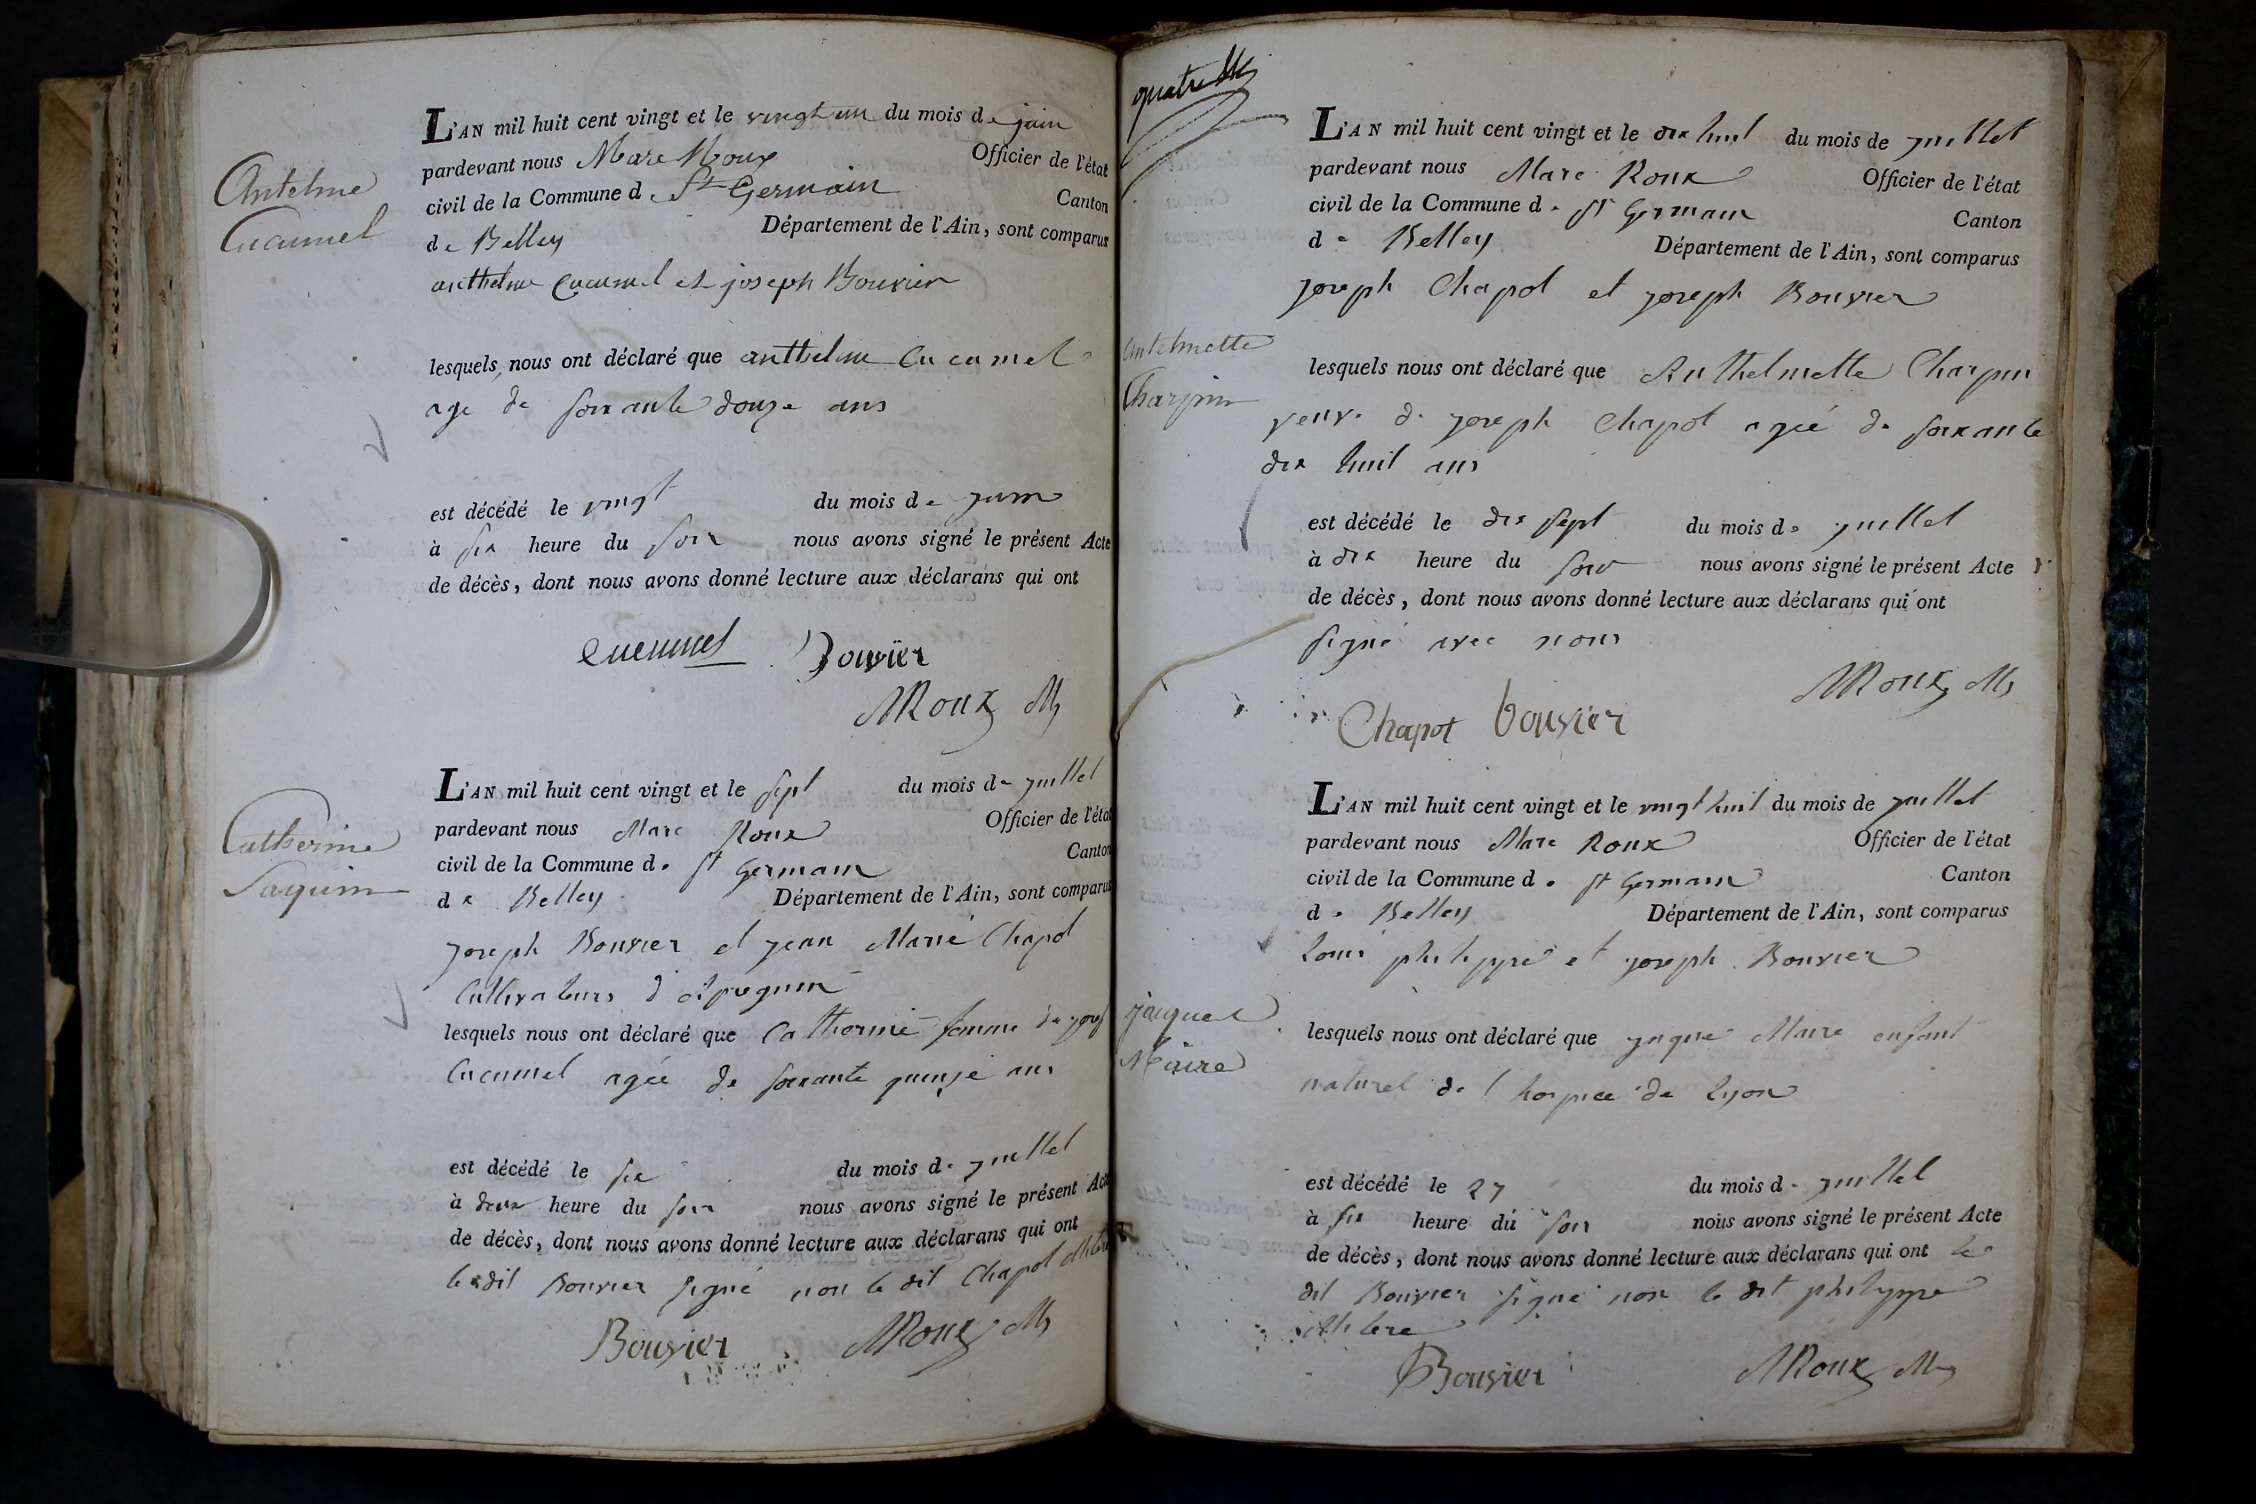 Antelme
Cucumel
L'AN mil huit cent vingt et le vingt un du mois de juin
pardevant nous Marc Roux Officier de l'état
civil de la Commune de St Germain Canton
de Belley Département de l'Ain, sont comparus
anthelme Cucumel et joseph Bouvier
lesquels nous ont déclaré que anthelme Cucumel
age de soixante douze ans
est décédé le vingt du mois de juin
à six heure du soir nous avons signé le présent Acte
de décès, dont nous avons donné lecture aux déclarans qui ont
Cucumel Bouvier
MRoux M
Catherine
Saquin
L'AN mil huit cent vingt et le sept du mois de juillet
pardevant nous Marc Roux Officier de l'état
civil de la Commune de St Germain Canton
de Belley Département de l'Ain, sont comparus
joseph Bouvier et jean Marie Chapot
Cultivateurs
lesquels nous ont déclaré que Catherine femme de josef
Cucumel agée de soixante quinze ans
est décédé le six du mois de juillet
à deux heure du soir nous avons signé le présent Acte
de décès, dont nous avons donné lecture aux déclarans qui ont
le dit Bouvier signé non le dit Chapot
Bouvier MRoux M
quatre
Antelmette
Charpin
L'AN mil huit cent vingt et le dix huit du mois de juillet
pardevant nous Marc Roux Officier de l'état
civil de la Commune de St Germain Canton
de Belley Département de l'Ain, sont comparus
joseph Chapot et joseph Bouvier
lesquels nous ont déclaré que Anthelmette Charpin
veuve de joseph Chapot agée de soixante
dix huit ans
est décédé le dix sept du mois de juillet
à dix heure du soir nous avons signé le présent Acte
de décès, dont nous avons donné lecture aux déclarans qui ont
signé avec nous
MRoux M
Chapot bouvier
jaques
Maire
L'AN mil huit cent vingt et le vingt huit du mois de juillet
pardevant nous Marc Roux Officier de l'état
civil de la Commune de St Germain Canton
de Belley Département de l'Ain, sont comparus
Louis philippe et joseph Bouvier
lesquels nous ont déclaré que jaque Maire enfant
naturel de l hospice de Lyon
est décédé le 27 du mois de juillet
à six heure du soir nous avons signé le présent Acte
de décès, dont nous avons donné lecture aux déclarans qui ont le
dit Bouvier signé non le dit philippe
illitere
Bouvier MRoux M